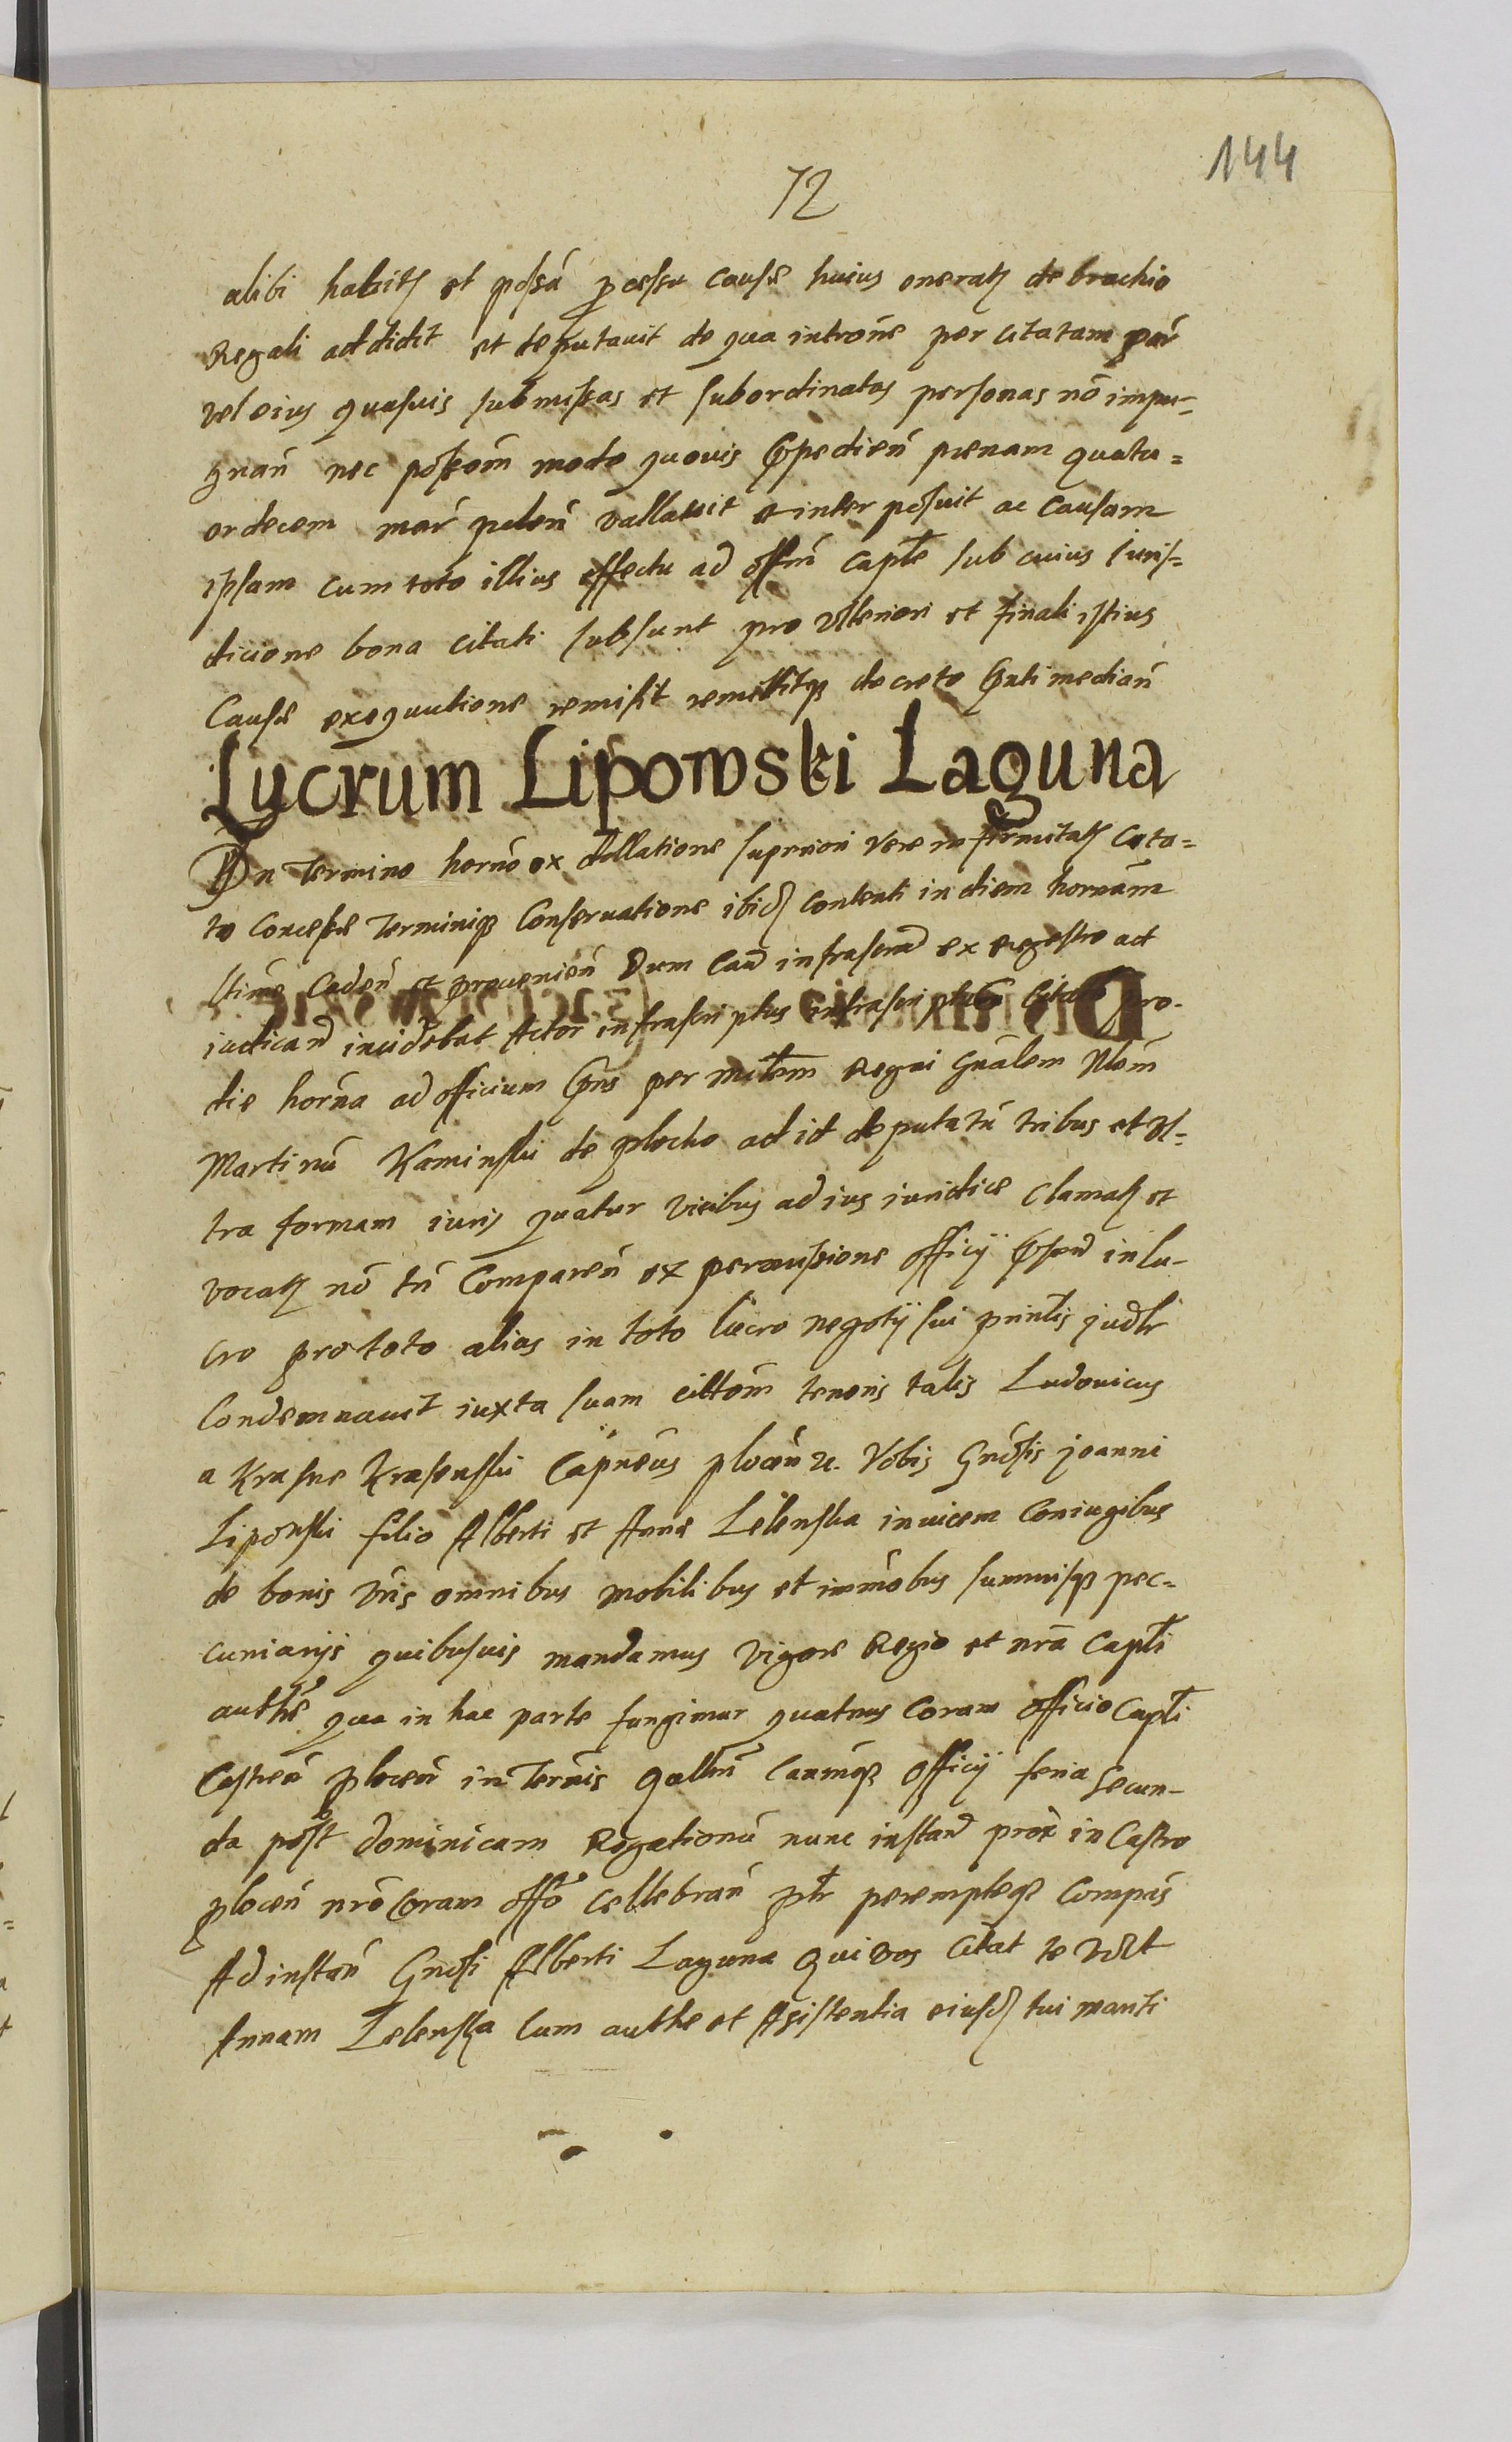 144
72
alibi habitꝫ et possá processu causæ huius oneratꝫ de brachio
Regali addidit et deputauit de qua introne per citatam par
vel eius quasuis submissas et subordinatas personas nō impu=
gnan̄ nec possom̄ modo quouis expedien̄ pœnam quatu=
ordecem mar polon̄ vallauit et interposuit ac causam
ipsam cum toto illius effectu ad offm̄ Captle sub cuius iuris=
dicione bona citati subsunt pro vlteriori et finali istius
Causæ exequutione remisit remittitqꝫ decreto pnti median̄
Lycrum Lipowski Laguna
In Termino horno ex dillatione superiori veræ infirmitatꝫ cita=
to concessæ Terminiqꝫ Conseruatione ibidꝫ contenti in diem hornam
caden̄ et prouenien̄ Dum Caua infrascrip ex regestro ad
iudicand incidebat Actor infrascriptus infrascriptum Citatos pro-
die horna ad officium pns per mitlem Regni Gnalem Nlem
Martinū Kaminski de plocko ad id deputatū tribus et vl=
tra formam iuris quatur vicibus ad ius iuridice clamatꝫ et
vocatꝫ nō tn̄ Comparen̄ ex percussione officij in lu-
cro pro toto alias in toto lucro negotij sui printis judlr
Condemnauit iuxta suam cittom̄ tenoris talis Ludouicus
a Krasne Krasenski Capneus plocen̄ ꝛc. Vobis Gnosis joanni
Liponski filio Alberti et Annæ Lelenska inuicem Coniugibus
de bonis vris omnibus mobilibus et immobus summisqꝫ pec=
cuniarijs quibusuis mandamus vigore Regio et nra Captli
authe qua in hac parte fungimur quatnus Coram officio Captli
Castren̄ plocen̄ in Terminis qallm̄ Caumqꝫ officij feria secun-
da post dominicam Rogationū nunc instand prox in Castro
plocen̄ nro Coram offo cellebran̄ ptr perempteqꝫ Comptis
Ad instan̄ Gnosi Alberti Laguna qui vos citat te vdlt
Annam Lelenska Cum authe et Assistentia eiusdꝫ tui mariti